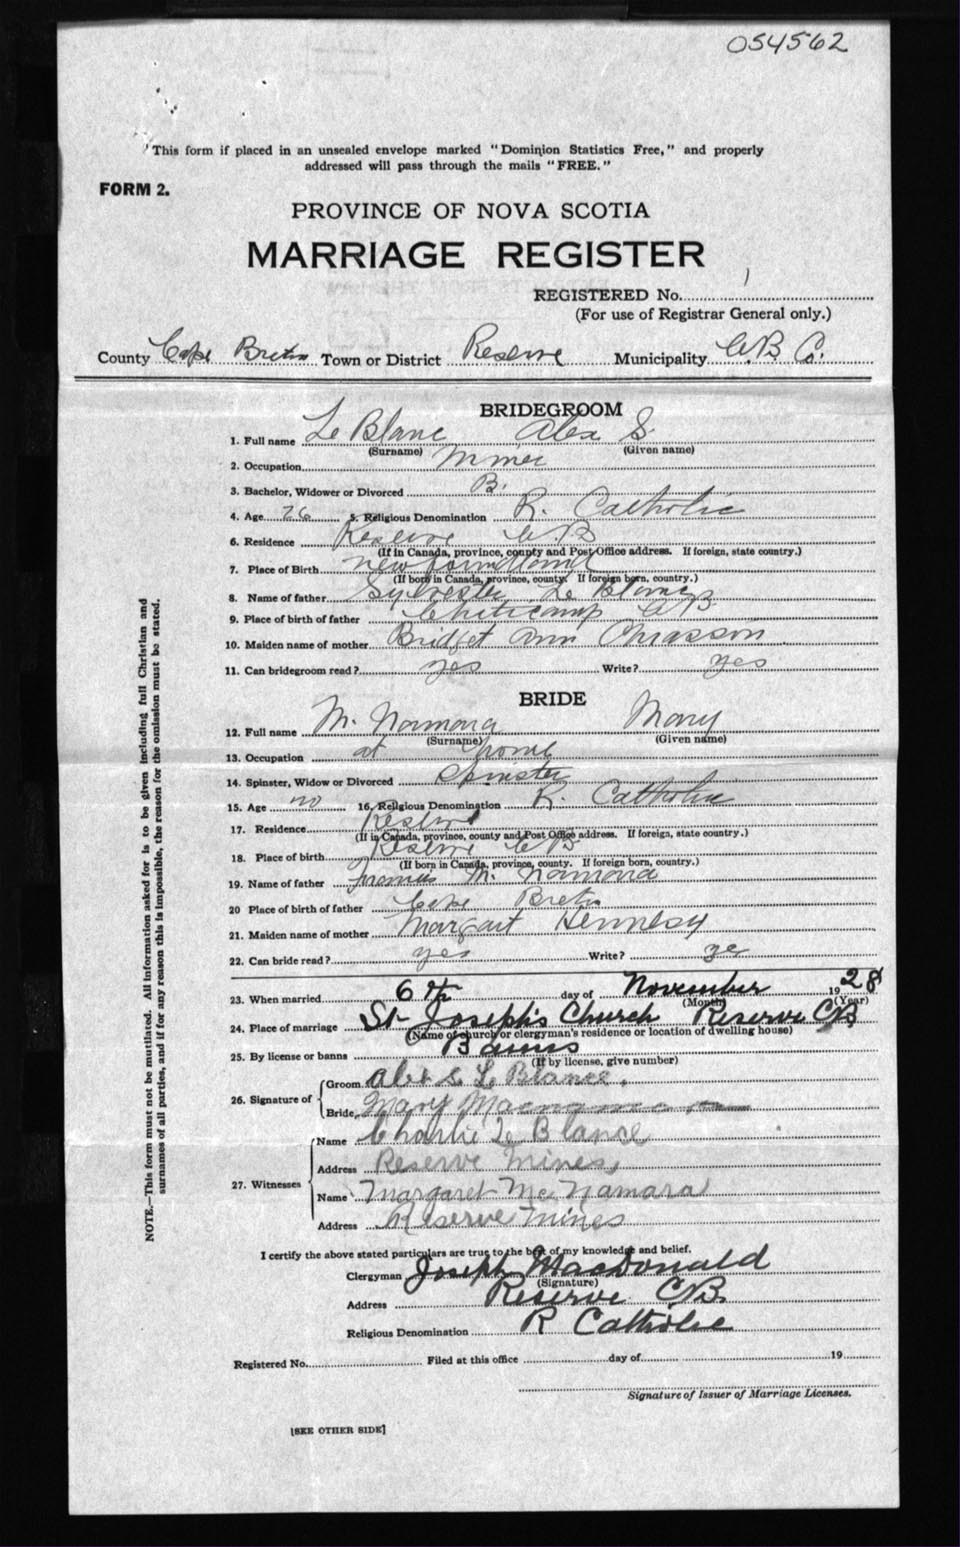 054562
"This form if placed in an unsealed envelope marked "Dominion Statistics Free," and properly
addressed will pass through the mails "FREE."
FORM 2.
PROVINCE OF NOVA SCOTIA
MARRIAGE REGISTER
REGISTERED No. 1
(For use of Registrar General only.)
County Cape Breton Town or District Reserve Municipality C.B Co.
BRIDEGROOM
1. Full name Le Blanc Alex S.
(Surname) (Given name)
2. Occupation Miner
3. Bachelor, Widower or Divorced B.
4. Age 26 5. Religious Denomination R. Catholic
6. Residence Reserve C.B
(If in Canada, province, county and Post Office address. If foreign, state country.)
7. Place of Birth Newfoundland
(If born in Canada, province, county. If foreign born, country.)
8. Name of father Sylvester Le Blanc
9. Place of birth of father Cheticamp C.B.
10. Maiden name of mother Bridget Ann Chiasson
11. Can bridegroom read? yes Write? yes
BRIDE
12. Full name Mc Namara Mary
(Surname) (Given name)
13. Occupation at home
14. Spinster, Widow or Divorced Spinster
15. Age 16. Religious Denomination R. Catholic
17. Residence Reserve
(If in Canada, province, county and Post Office address. If foreign, state country.)
18. Place of birth Reserve C.B
(If born in Canada, province, county. If foreign born, country.)
19. Name of father Francis Mc Namara
20 Place of birth of father Cape Breton
21. Maiden name of mother Margaret Hennesy
22. Can bride read? yes Write? yes
23. When married 6th day of November 1928
(Month) (Year)
24. Place of marriage St Joseph's Church Reserve CB
(Name of church or clergyman's residence or location of dwelling house)
25. By license or banns Banns
(If by license, give number)
26. Signature of
Groom Alex S. Le Blance.
Bride Mary
27. Witnesses
Name Charlie Le Blance
Address Reserve Mines,
Name Margaret McNamara
Address Reserve Mines
I certify the above stated particulars are true to the best of my knowledge and belief.
Clergyman Joseph MacDonald
(Signature)
Address Reserve C.B.
Religious Denomination R Catholic
Registered No. Filed at this office day of 19
Signature of Issuer of Marriage Licenses.
[SEE OTHER SIDE]
NOTE.—This form must not be mutilated. All information asked for is to be given including full Christian and
surnames of all parties, and if for any reason this is impossible, the reason for the omission must be stated.